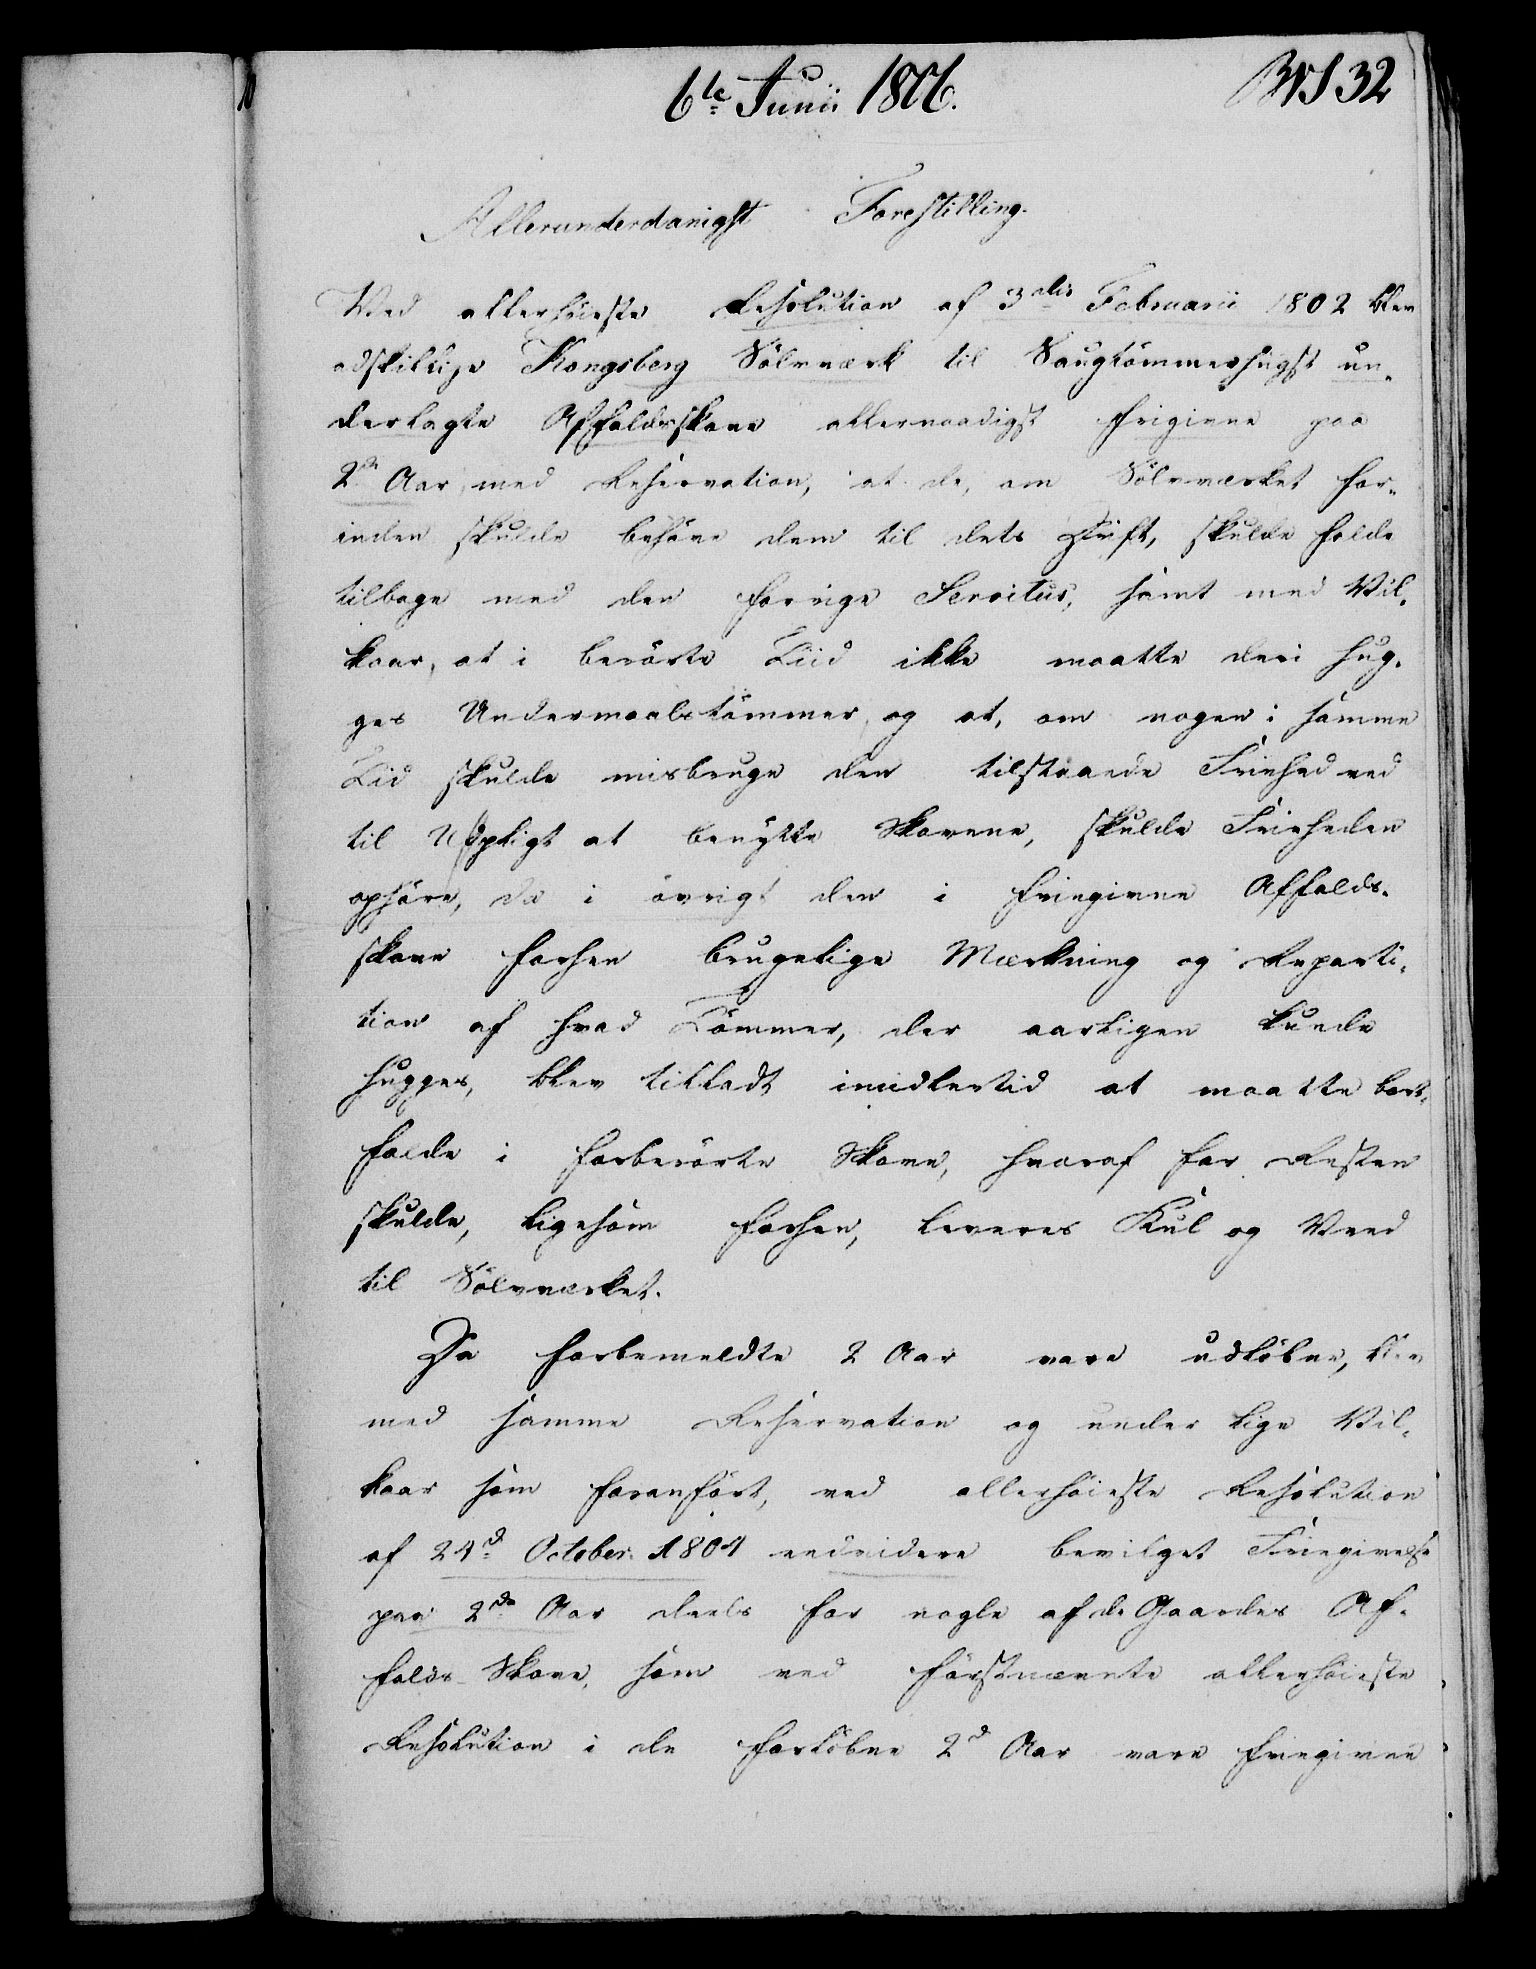 6te Junii 1806.
32
Allerunderdanigst Forestilling.
Ved allerhöieste Resolution af 3die Februarii 1802 blev
adskillige Kongsberg Sölvværk til Saugtömmerhugst un-
derlagte Affaldsskove allernaadigst frigivne paa
2de Aar, med Reservation, at de, om Sölvværket for-
inden skulde behöve dem til dets Drift, skulde falde
tilbage med den forrige Servitus, samt med Vil-
kaar, at i berörte Tiid ikke maatte deri hug-
ges Undermaalstömmer, og at, om nogen i samme
Tid skulde misbruge den tilstaaede Friehed ved
til Upligt at benytte Skovene, skulde Frieheden
ophöre, da i övrigt den i friegivne Affalds-
skove forhen brugelige Mærkning og Reparti-
tion af hvad Tömmer, der aarligen kunde
hugges, blev tilladt imidlertid at maatte bort-
falde i forberörte Skove, hvoraf for Resten
skulde, ligesom forhen, leveres Kul og Veed
til Sölvværket.
Da forbemeldte 2 Aar vare udlöbne, blev
med samme Reservation og under lige Vil-
kaar som foranfört, ved allerhöieste Resolution
af 24d October 1804 endvidere bevilget Friegivelse
paa 2de Aar deels for nogle af de Gaardes Af-
falds-Skove, som ved förstnævnte allerhöieste
Resolution i de forlöbne 2d Aar vare friegivne